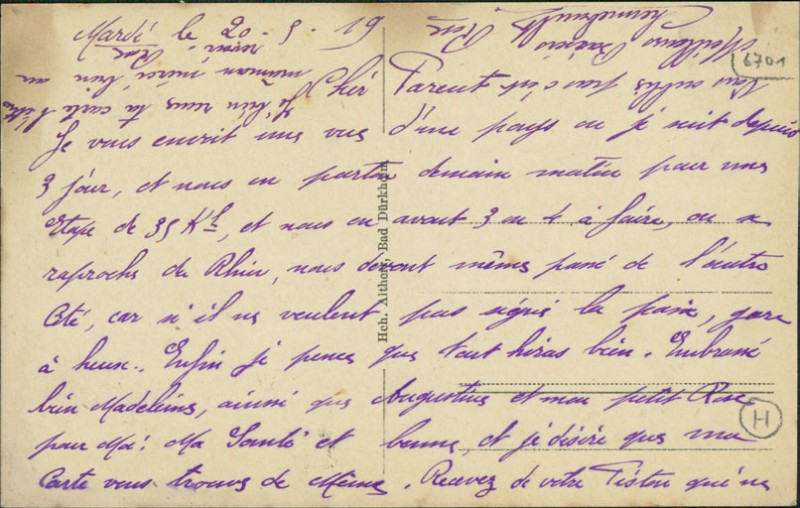 Mardi le 20 - 5 - 19
Chér Parent
Je vous envoit une vue d'une pays ou je suit depuis
3 jour, et nous en partons demain matin pour une
Etape de 35 Kl, et nous en avont 3 ou 4 à faire, on se
raproche du Rhin, nous devont mêmes passé de l'autre
Coté, car si il ne veulent pas signé la paix, gare
à heux.. Enfin je pense que tout hiras bien. Embrassé
bien Madeleine, ainssi que Augustine et mon petit René
pour Moi. Ma Santé et bonne, et je désire que ma
Carte vous trouve de Même. Recevez de votre Tistou qui ne
vous oublis pas
Meilleurs Baisers
J'ai bien reçus ta carte lettre
maman merci bien
Hch. Althorn, Bad Dürkheim
6701
H